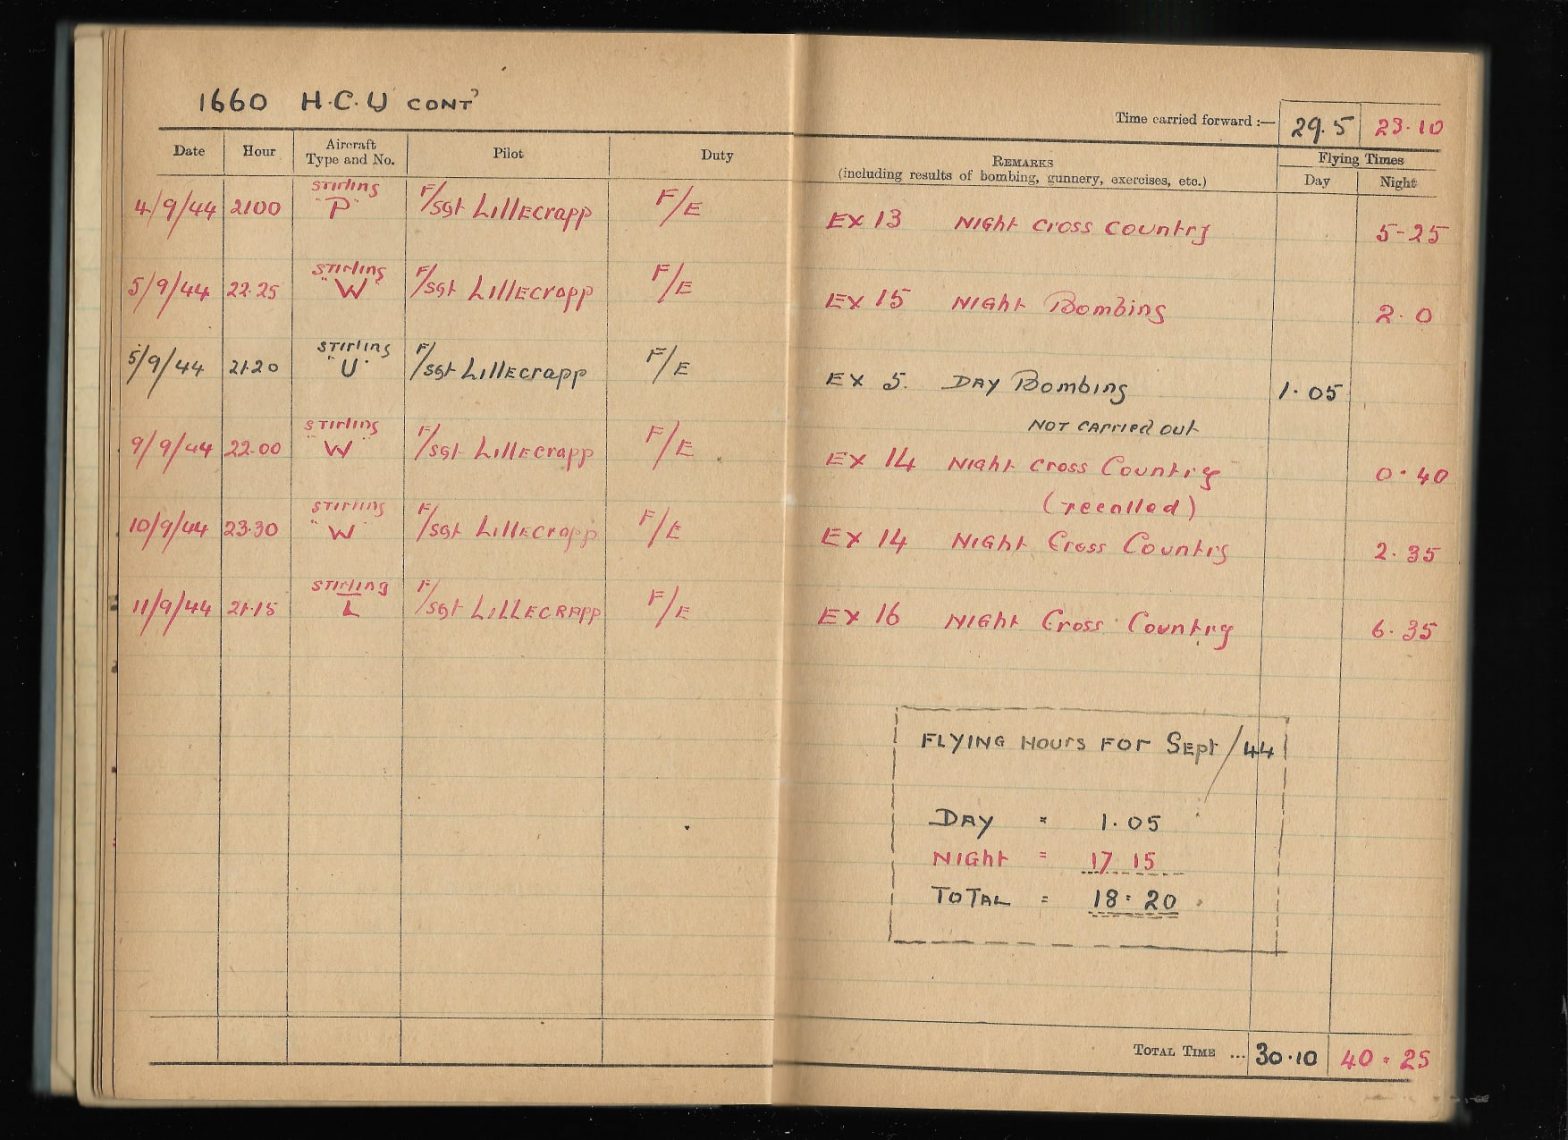 1660 H.C.U CONT'
Time carried forward :— 29.5 23.10
Date Hour Aircraft Type and No. Pilot Duty REMARKS (including results of bombing, gunnery, exercises, etc.) Flying Times Day Night
4/9/44 2100 Stirling "P" F/Sgt Lillecrapp F/E EX 13 Night cross country 5-25
5/9/44 22.25 Stirling "W" F/Sgt Lillecrapp F/E EX 15 Night Bombing 2.0
5/9/44 21.20 Stirling "U" F/Sgt Lillecrapp F/E EX 5. DAY Bombing 1.05
NOT carried out
9/9/44 22.00 Stirling "W" F/Sgt Lillecrapp F/E EX 14 Night cross Country 0.40
(recalled)
10/9/44 23.30 Stirling "W" F/Sgt Lillecrapp F/E EX 14 Night Cross Country 2.35
11/9/44 21.15 Stirling L F/Sgt LILLECRAPP F/E EX 16 Night Cross Country 6.35
FLYING HOURS FOR Sept/44
DAY = 1.05
NIGHT = 17 15
TOTAL = 18.20
TOTAL TIME ... 30.10 40.25